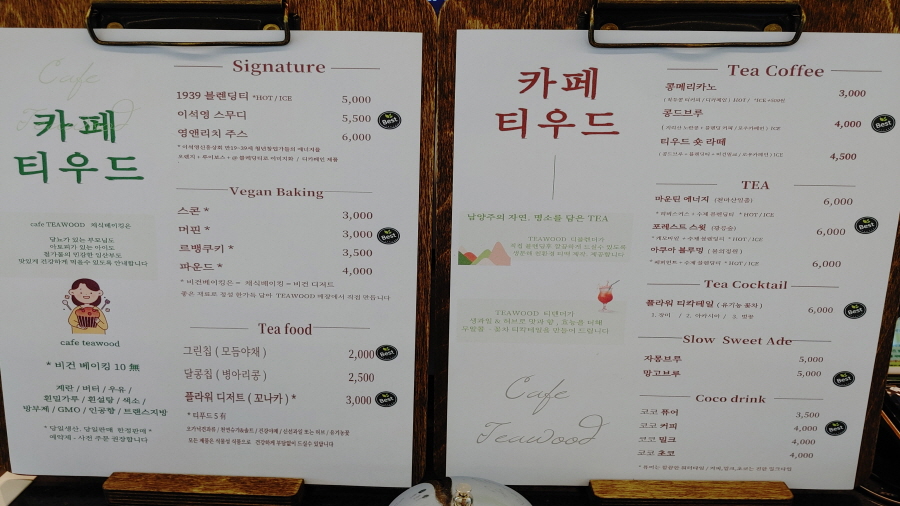 Cafe
Teawood
카페
티우드
cafe TEAWOOD 채식베이킹은
당뇨가 있는 부모님도
아토피가 있는 아이도
먹거리 건강하게 먹을수 있도록 안내합니다
cafe teawood
* 비건 베이킹 10 無
계란 / 버터 / 우유 /
흰밀가루 / 흰설탕 / 색소 /
방부제 / GMO / 인공향 / 트랜스지방
* 당일생산, 당일판매 한정판매 *
예약제 - 사전 주문 권장합니다
Signature
1939 블렌딩티 *HOT / ICE 5,000
이석영 스무디 5,500 Best
영앤리치 주스 6,000
Vegan Baking
스콘 * 3,000
머핀 * 3,000 Best
르뱅쿠키 * 3,500
파운드 * 4,000
* 비건베이킹은 = 채식베이킹 = 비건 디저트
좋은 재료로 정성 한가득 담아 TEAWOOD 매장에서 직접 만듭니다
Tea food
그린칩 ( 모듬야채 ) 2,000 Best
달콩칩 ( 병아리콩 ) 2,500
플라워 디저트 ( 꼬나카 ) * 3,000 Best
* 티푸드 5 有
모든 제품은 식물성 식품으로 건강하게 부담없이 드실수 있답니다
카페
티우드
남양주의 자연, 명소를 담은 TEA
Cafe
Teawood
Tea Coffee
콩메리카노 3,000
콩드브루 4,000 Best
티우드 숏 라떼 4,500
TEA
마운틴 에너지 ( 천마산일출 ) 6,000
* HOT / ICE
포레스트 스윗 ( 광릉숲 ) 6,000 Best
* HOT / ICE
아쿠아 블루밍 6,000
* HOT / ICE
Tea Cocktail
플라워 티칵테일 ( 유기농 꽃차 ) 6,000 Best
1. 장미 / 2. 아카시아 / 2. 벚꽃
Slow Sweet Ade
자몽브루 5,000
망고브루 5,000 Best
Coco drink
코코 퓨어 3,500
코코 커피 4,000 Best
코코 밀크 4,000
코코 초코 4,000